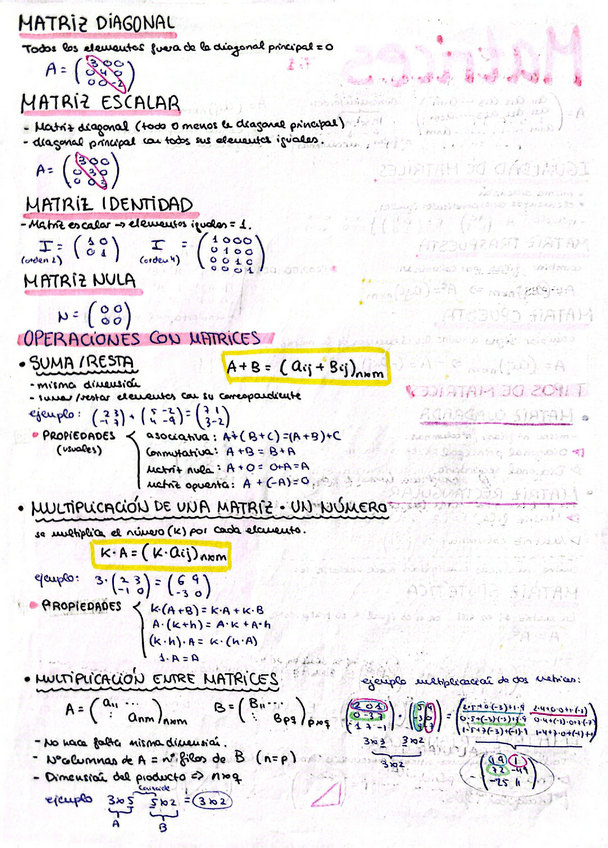 MATRIZ DIAGONAL
Todos los elementos fuera de la diagonal principal = 0
A = (3 0 0
0 4 0
0 0 -2)
MATRIZ ESCALAR
- Matriz diagonal (todo 0 menos la diagonal principal)
- diagonal principal con todos sus elementos iguales.
A = (3 0 0
0 3 0
0 0 3)
MATRIZ IDENTIDAD
- Matriz escalar → elementos iguales = 1.
I = (1 0 I = (1 0 0 0
0 1) 0 1 0 0
(orden 2) (orden 4) 0 0 1 0
0 0 0 1)
MATRIZ NULA
N = (0 0
0 0)
OPERACIONES CON MATRICES
• SUMA / RESTA
A + B = (aij + Bij)nxm
- misma dimensión
- sumar/restar elementos con su correspondiente
ejemplo: (2 3 + (5 -2 = (7 1
-1 3) 4 -9) 3 -2)
• PROPIEDADES
(usuales)
asociativa: A+(B+C)=(A+B)+C
Conmutativa: A+B = B+A
Matriz nula: A+0 = 0+A = A
Matriz opuesta: A + (-A) = 0
• MULTIPLICACIÓN DE UNA MATRIZ · UN NÚMERO
se multiplica el número (K) por cada elemento.
K·A = (K·aij)nxm
ejemplo: 3·(2 3 = (6 9
-1 0) -3 0)
• PROPIEDADES
K·(A+B) = K·A + K·B
A·(K+h) = A·K + A·h
(K·h)·A = K·(h·A)
1·A = A
• MULTIPLICACIÓN ENTRE MATRICES
A = (a11 ... anm)nxm B = (B11 ... Bpq)pxq
- No hace falta misma dimensión.
- Nº columnas de A = nº filas de B (n=p)
- Dimensión del producto => nxq
coincide
ejemplo 3x5 5x2 = (3x2)
A B
ejemplo multiplicación de dos matrices:
3x3 3x2
3x2